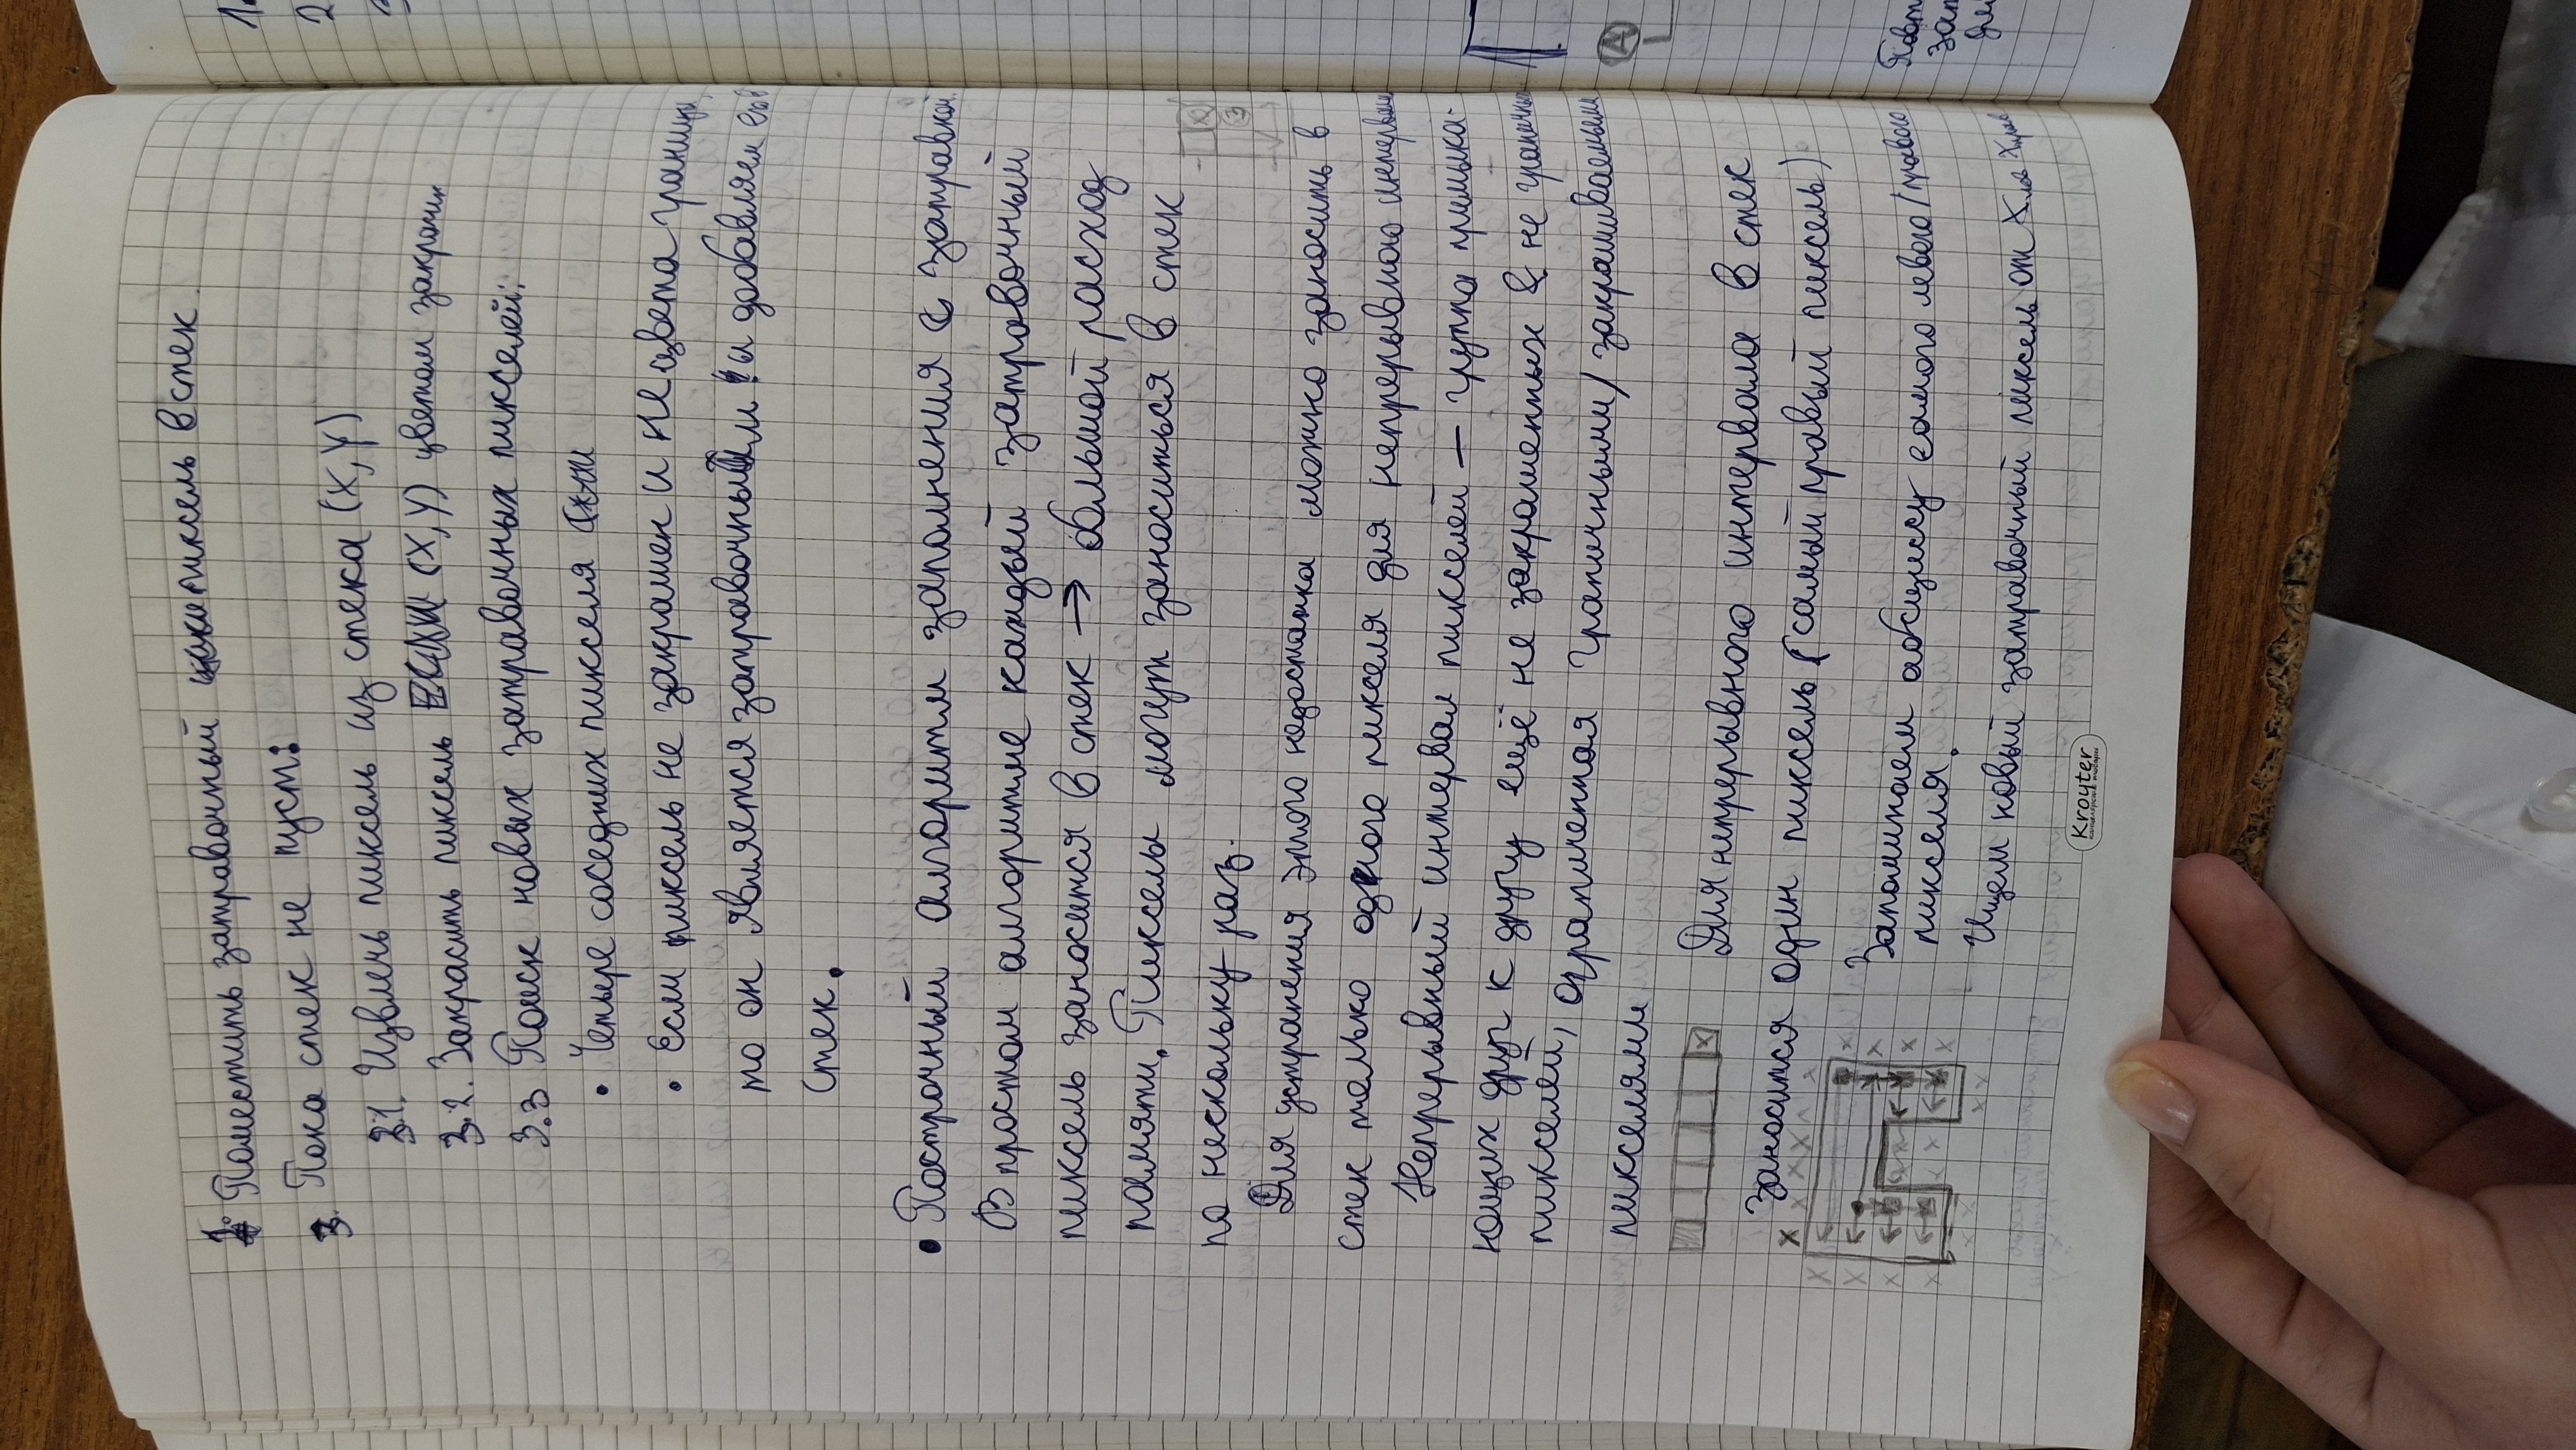 1. Поместить затравочный пиксель в стек.
3. Пока стек не пуст:
3.1. Извлечь пиксель из стека (X, Y)
3.2. Закрасить пиксель (X, Y) цветом закраски
3.3 Поиск новых затравочных пикселей:
• Четыре соседних пикселя
• Если пиксель не закрашен и не цвета границы,
то он является затравочным и добавляем его в
стек.
• Построчный алгоритм заполнения с затравкой.
В простом алгоритме каждый затравочный
пиксель заносится в стек → большой расход
памяти. Пикселы могут заноситься в стек
по нескольку раз.
Для устранения этого недостатка можно заносить в
стек только одного пикселя для непрерывного интервала
Непрерывный интервал пикселей — группа примыка-
ющих друг к другу ещё не закрашенных & не граничных
пикселей, ограниченная граничными/закрашиваемыми
пикселями
Для непрерывного интервала в стек
заносится один пиксель (самый правый пиксель)
Запоминаем абсциссу самого левого/правого
пикселя.
Ищем новый затравочный пиксель от Xлев Xправ
Kroyter
канцелярские товары
1.
2
3
A
Повт
Зат